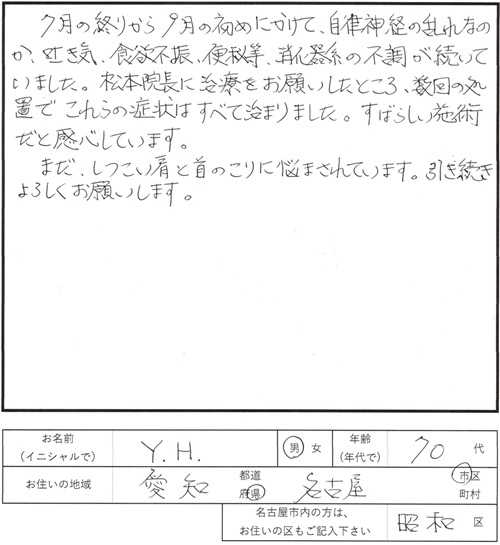 7月の終りから9月の初めにかけて、自律神経の乱れなの
か、吐き気、食欲不振、便秘等、消化器系の不調が続いて
いました。松本院長に治療をお願いしたところ、数回の処
置でこれらの症状はすべて治まりました。すばらしい施術
だと感心しています。
まだ、しつこい肩と首のこりに悩まされています。引き続き
よろしくお願いします。
お名前
(イニシャルで)
Y.H.
男 女
年齢
(年代で)
70 代
お住いの地域
愛知
都道
府県
名古屋
市区
町村
名古屋市内の方は、
お住いの区もご記入下さい
昭和 区